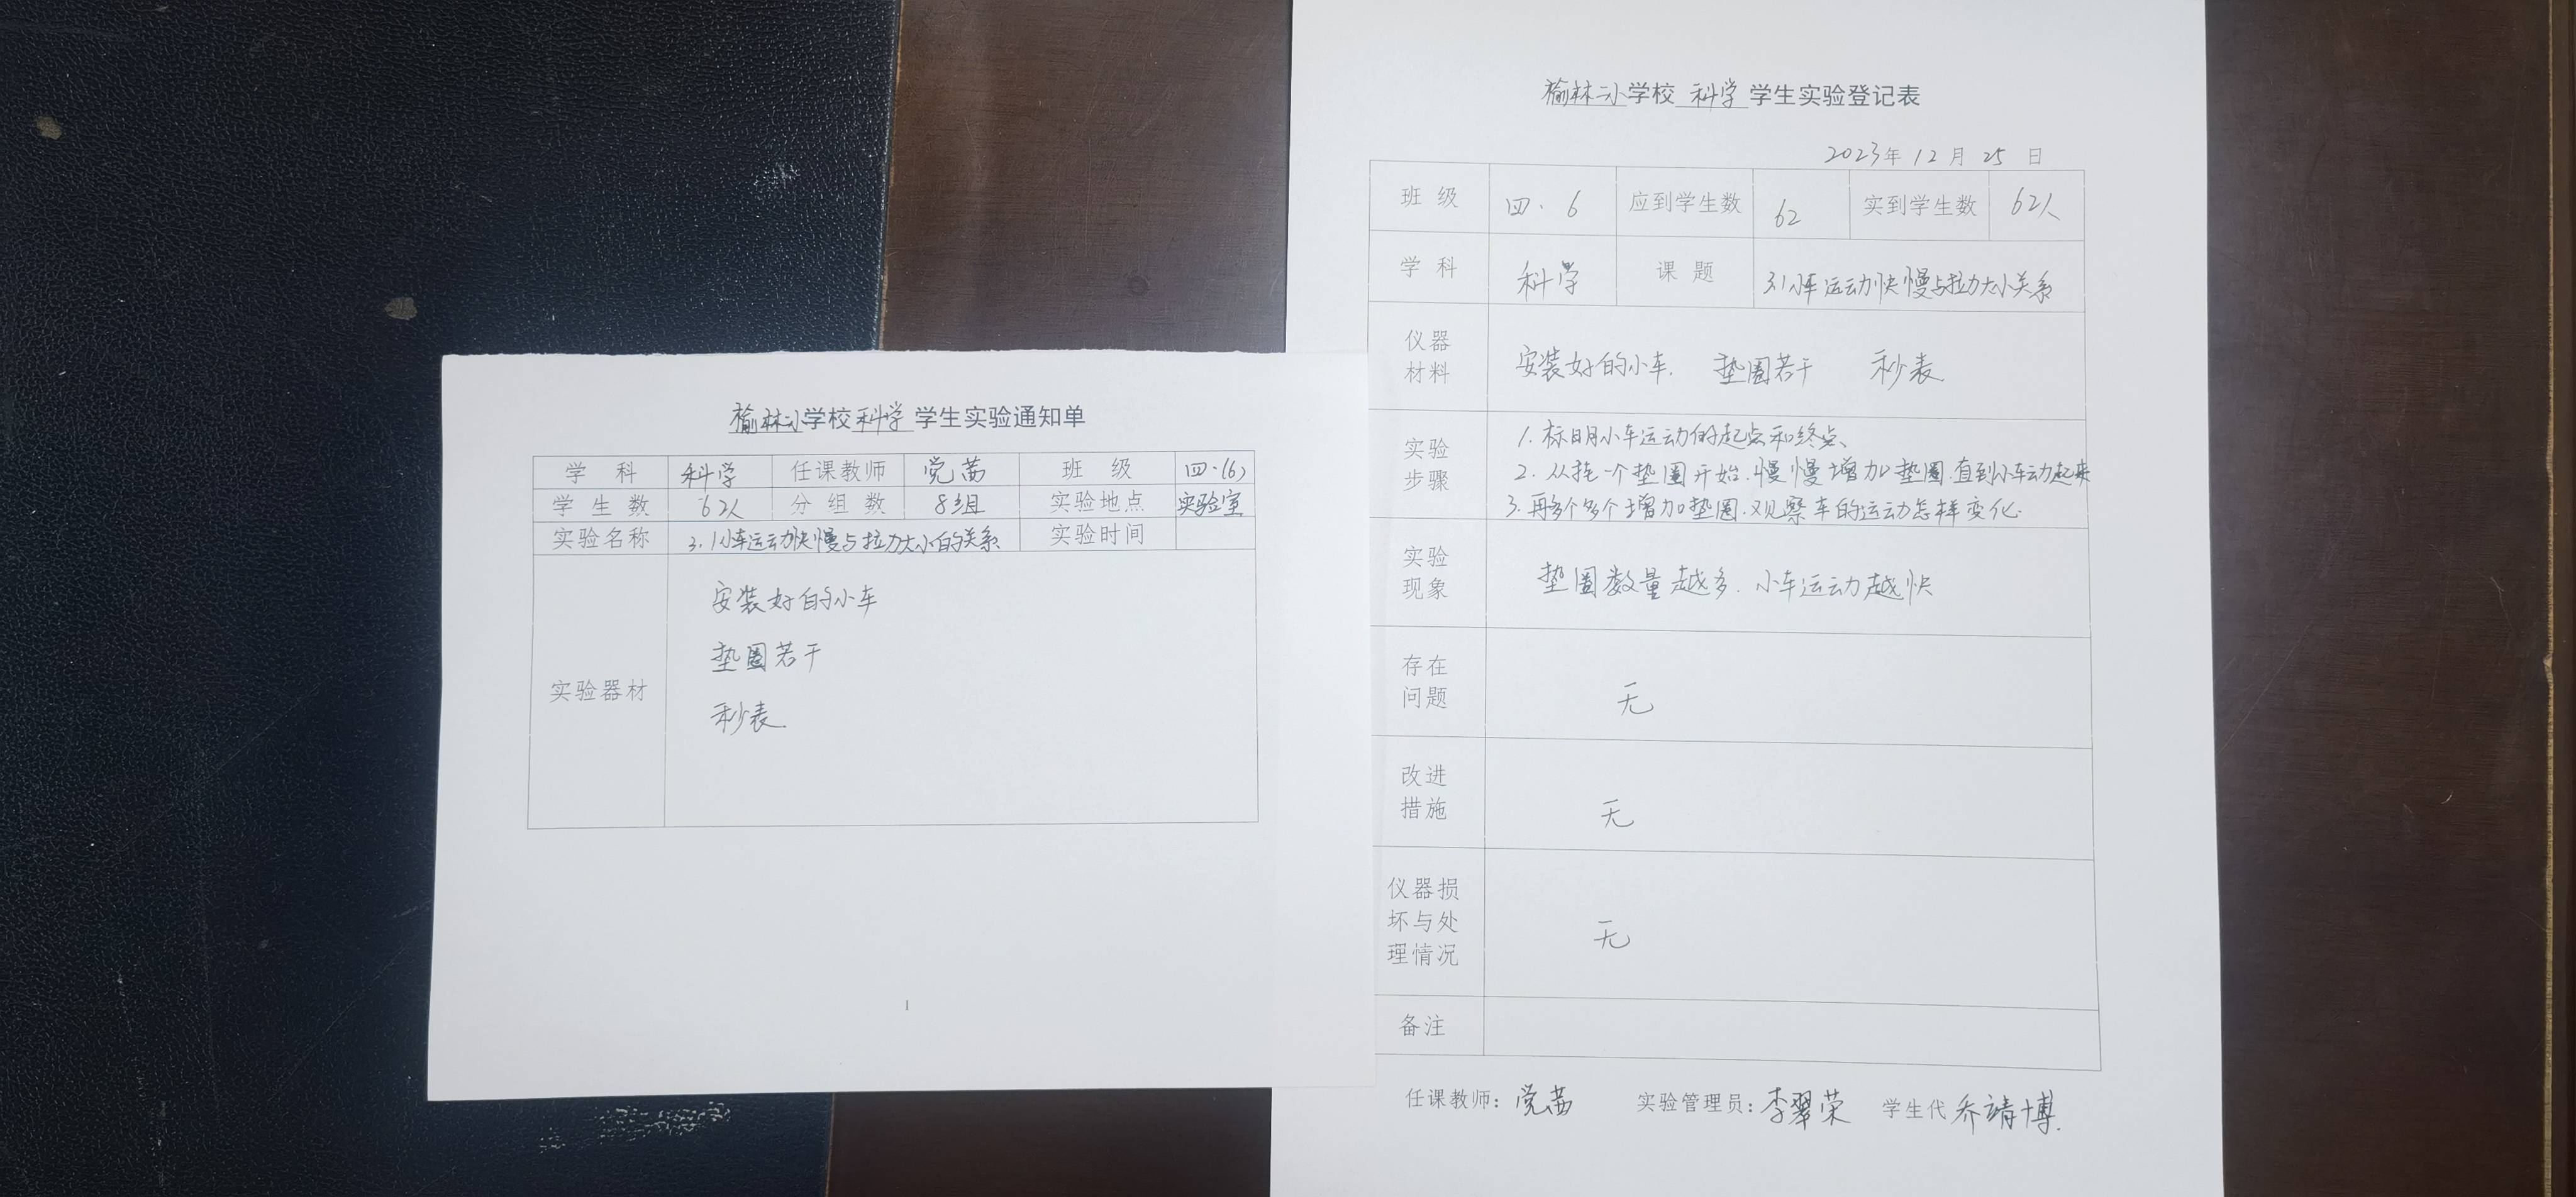 榆林二小学校科学学生实验通知单
学 科 科学 任课教师 党茜 班 级 四·(6)
学 生 数 62人 分 组 数 8组 实验地点 实验室
实验名称 3.1小车运动快慢与拉力大小的关系 实验时间
实验器材
安装好的小车
垫圈若干
秒表.
1
榆林二小学校 科学 学生实验登记表
2023年 12 月 25 日
班 级 四·6 应到学生数 62 实到学生数 62人
学 科 科学 课 题 3.1小车运动快慢与拉力大小关系
仪器
材料
安装好的小车. 垫圈若干 秒表.
实验
步骤
1.标明小车运动的起点和终点、
2.从挂一个垫圈开始.慢慢增加垫圈.直到小车动起来
3.再多个多个增加垫圈.观察车的运动怎样变化.
实验
现象
垫圈数量越多.小车运动越快
存在
问题
无
改进
措施
无
仪器损
坏与处
理情况
无
备注
任课教师：党茜 实验管理员：李翠荣 学生代 乔靖博.